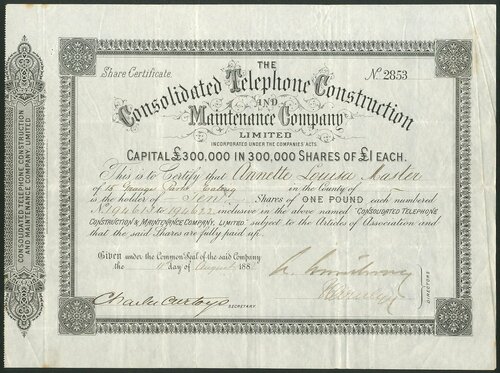 THE
Share Certificate.
No. 2853
Consolidated Telephone Construction
AND
Maintenance Company
LIMITED
INCORPORATED UNDER THE COMPANIES ACTS.
CAPITAL £300,000 IN 300,000 SHARES OF £1 EACH.
This is to Certify that Annette Louisa Master
of 15 Grange Park Ealing in the County of
is the holder of Ten Shares of ONE POUND each numbered
No. 194613 to 194622 inclusive in the above named "CONSOLIDATED TELEPHONE
CONSTRUCTION & MAINTENANCE COMPANY, LIMITED" subject to the Articles of Association and
that the said Shares are fully paid up.
Given under the Common Seal of the said Company
the day of August 188
Charles Curtoys
SECRETARY
DIRECTORS
CONSOLIDATED TELEPHONE CONSTRUCTION
AND MAINTENANCE COMPANY LIMITED